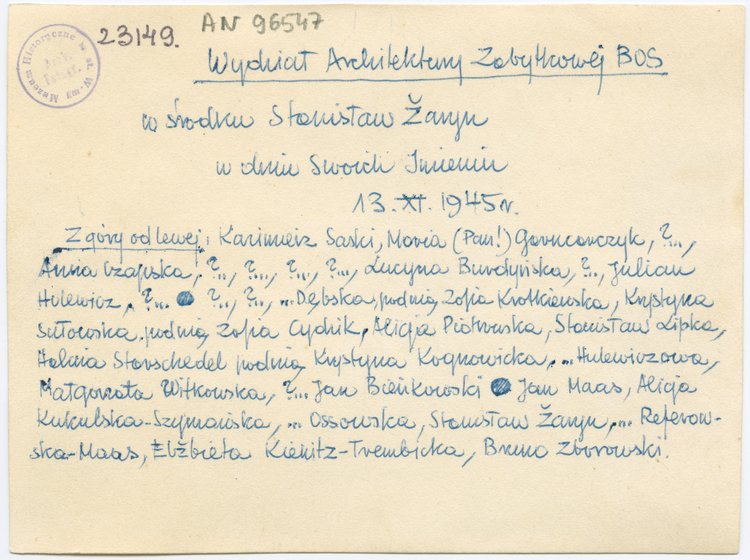 23149.
AN 96547
Muzeum Historyczne m. st. W-wy
Wydział Architektury Zabytkowej BOS
w środku Stanisław Żaryn
w dniu Swoich Imienin
13. XI. 1945 r.
Z góry od lewej: Kazimierz Saski, Maria (Pam!) Gorncarczyk, ?...,
Anna Czapska, ?..., ?..., ?..., ?..., Lucyna Burdyńska, ?.., Julian
Hulewicz, ?... ?..., ?..., ...Dębska, pod nią Zofia Krotkiewska, Krystyna
Sułowska, pod nią Zofia Cydzik, Alicja Piotrowska, Stanisław Lipka,
Halina Starschedel pod nią Krystyna Kognowicka, ...Hulewiczowa,
Małgorzata Witkowska, ?... Jan Bieńkowski Jan Maas, Alicja
Kukulska-Szymańska, ... Ossowska, Stanisław Żaryn, ... Referow-
ska-Maas, Elżbieta Kienitz-Trembicka, Bruno Zborowski.